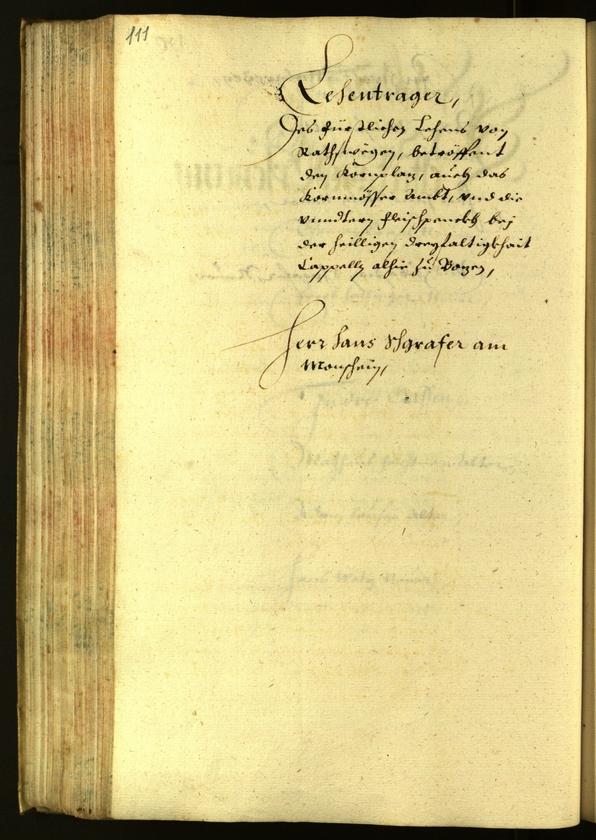 111
Lehentrager,
Des fürstlichen Lehens von
Rathswegen, betröffent
den Kornplaz, auch das
Kornmösser Ambt, vnd die
vnndtern fleischpennckh bej
der heilligen dreyfaltigkhait
Cappelln alhie zu Bozen,
Herr Hans Schgrafer am
Monschein,